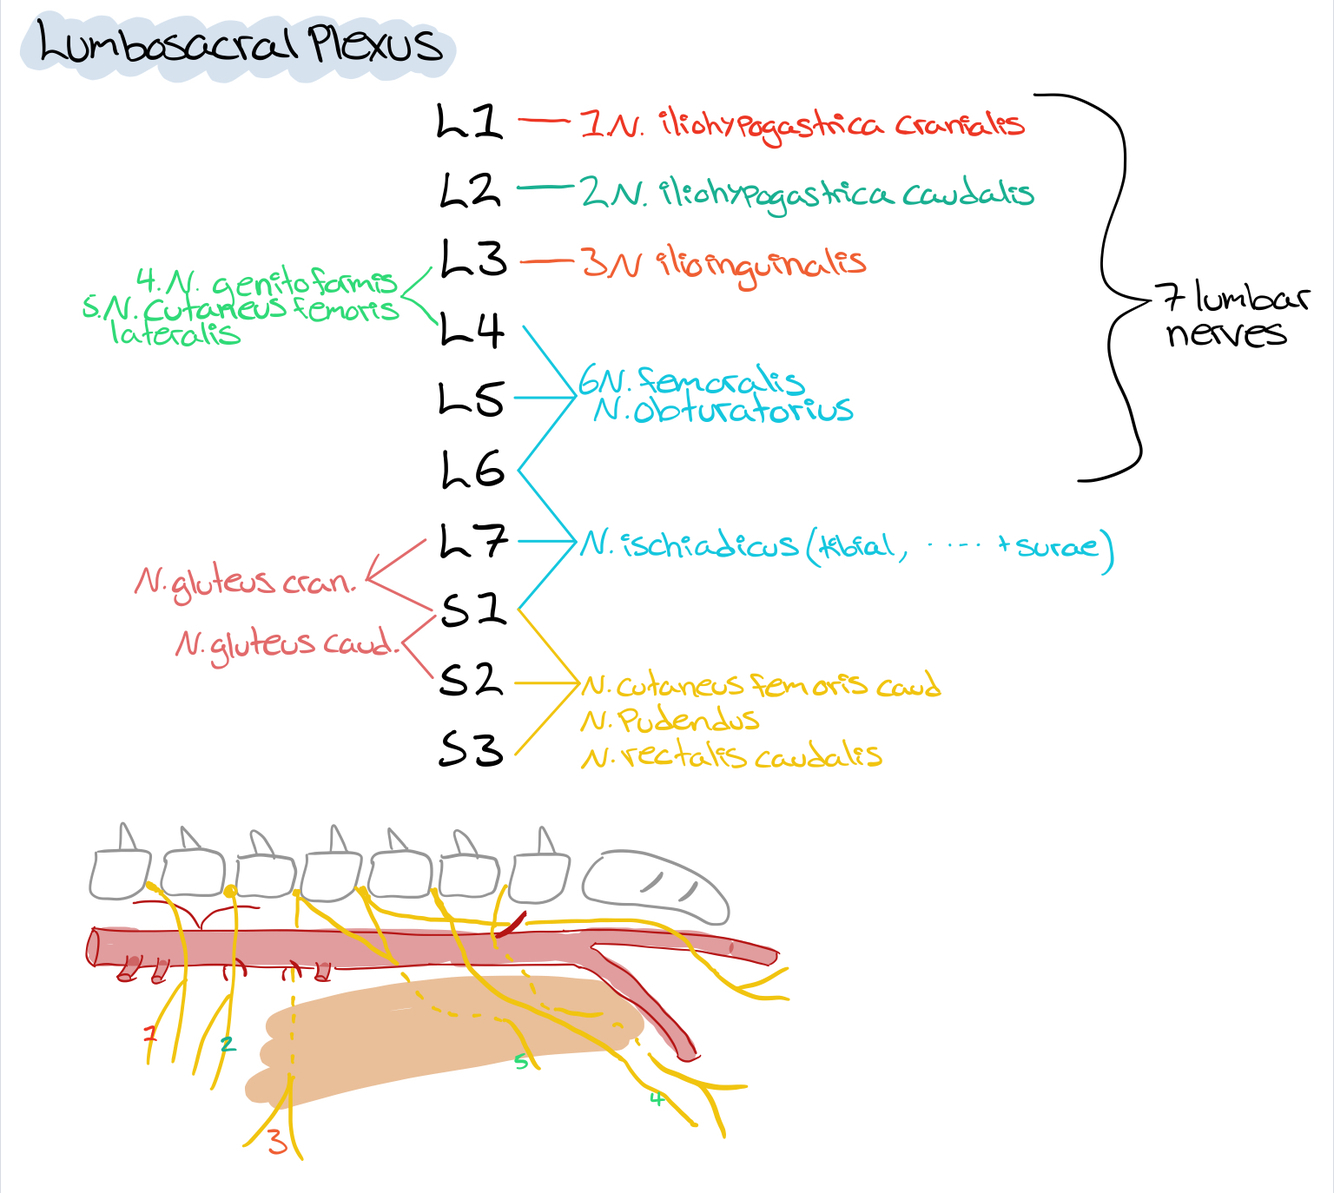 Lumbosacral Plexus
L1
1N. iliohypogastrica cranialis
L2
2N. iliohypogastrica caudalis
L3
3N ilioinguinalis
4. N. genitoformis
5.N. cutaneus femoris
lateralis
L4
7 lumbar
nerves
6N. femoralis
L5
N. obturatorius
L6
L7
N. ischiadicus (tibial, ..... + surae)
N. gluteus cran.
S1
N. gluteus caud.
S2
N. cutaneus femoris caud
N. Pudendus
S3
N. rectalis caudalis
1
2
3
5
4